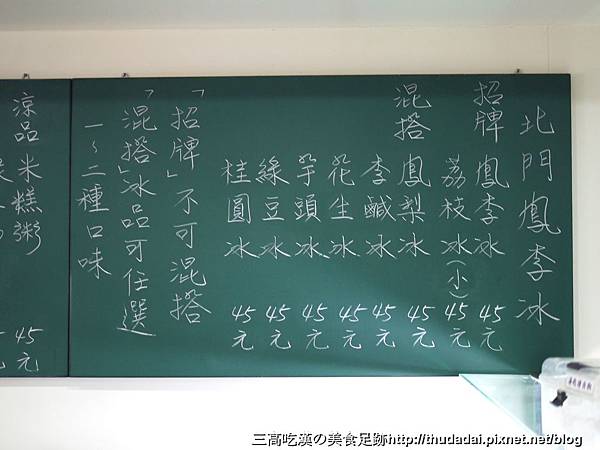 北門鳳李冰
招牌 鳳李冰 45元
荔枝冰(小) 45元
混搭 鳳梨冰 45元
李鹹冰 45元
花生冰 45元
芋頭冰 45元
綠豆冰 45元
桂圓冰 45元
「招牌」不可混搭
「混搭」冰品可任選
一~二種口味
涼品 米糕粥 45元
三高吃漢の美食足跡http://thudadai.pixnet.net/blog